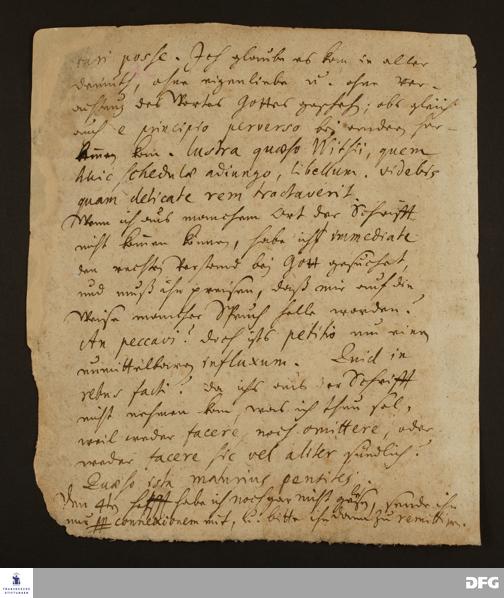 cari posse. Ich glaube es kan in aller
demuth, ohne eigenliebe u. ohne ver-
achtung des Wortes Gottes geschehen; obs gleich
auch e principio perverso bey andern her-
kommen kan. Lustra quaeso Witsii, quem
huic schedulae adiungo, libellum. videbis
quam delicate rem tractaverit.
Wenn ich aus manchem Ort der Schrifft
nicht kommen können, habe ichs immediate
den rechten Verstand bey Gott gesuchet,
und muß ihn preisen, daß mir auf die
Weise mancher Spruch helle worden.
An peccavi? doch ists petitio um einen
unmittelbaren influxum. Quid in
rebus facti? da ichs aus der Schrifft
nicht nehmen kan, was ich thun sol,
weil weder facere, noch omittere, oder
weder facere sic vel aliter sündlich?
Quaeso ista maturius
Den 4ten habe ich noch gar nicht gelesen, sende ihn
nur connexionem mit, u. bitte ihn dann zu remittiren.
FRANCKESCHE
STIFTUNGEN
DFG